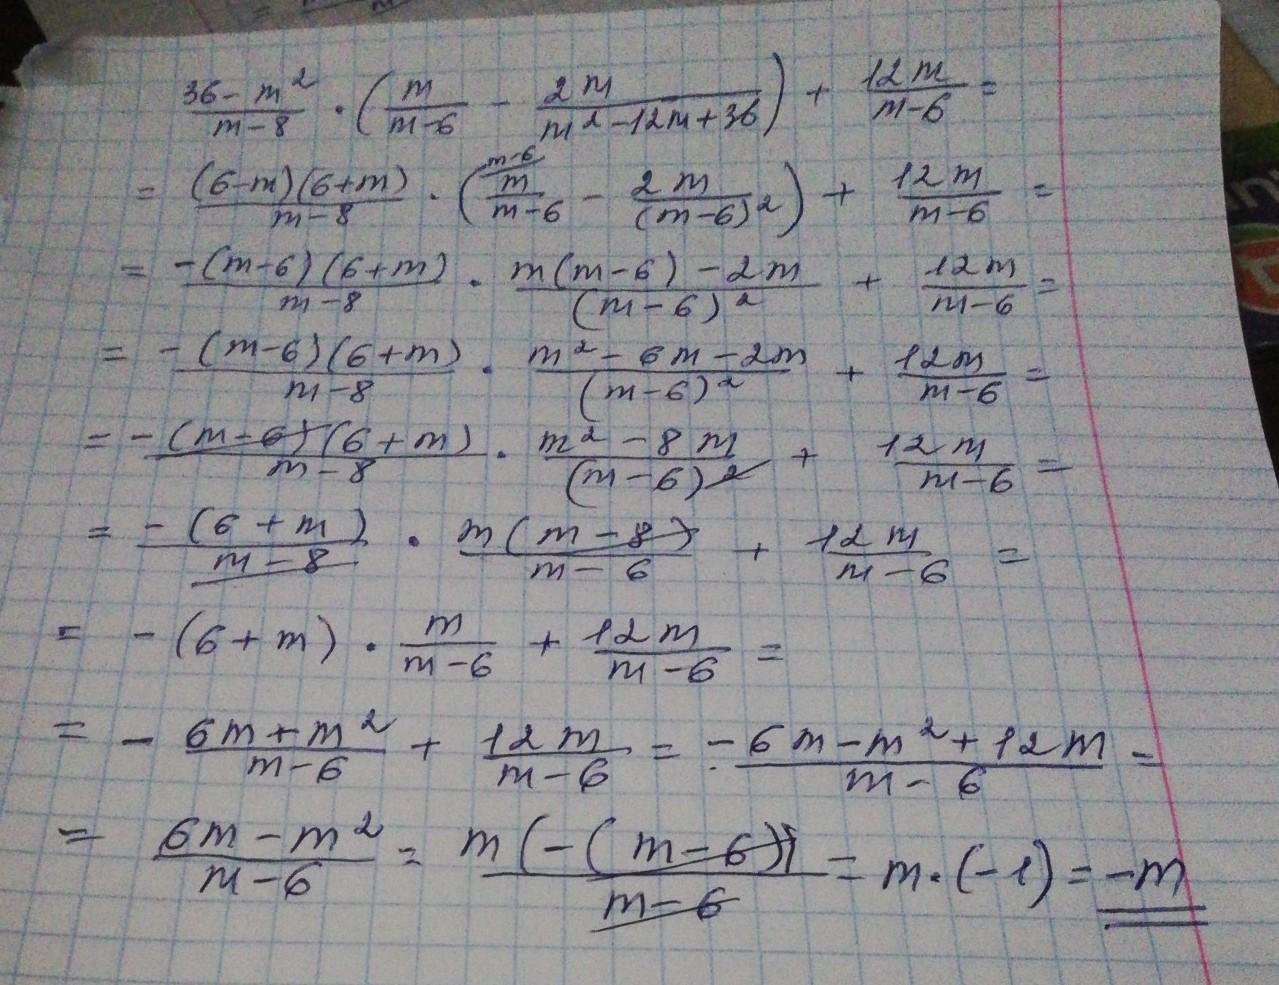 36-m²/m-8 · (m/m-6 - 2m/m²-12m+36) + 12m/m-6 =
= (6-m)(6+m)/m-8 · (m-6 m/m-6 - 2m/(m-6)²) + 12m/m-6 =
= -(m-6)(6+m)/m-8 · m(m-6)-2m/(m-6)² + 12m/m-6 =
= -(m-6)(6+m)/m-8 · m²-6m-2m/(m-6)² + 12m/m-6 =
= -(m-6)(6+m)/m-8 · m²-8m/(m-6)² + 12m/m-6 =
= -(6+m)/m-8 · m(m-8)/m-6 + 12m/m-6 =
= -(6+m) · m/m-6 + 12m/m-6 =
= - 6m+m²/m-6 + 12m/m-6 = -6m-m²+12m/m-6 =
= 6m-m²/m-6 = m(-(m-6))/m-6 = m·(-1) = -m